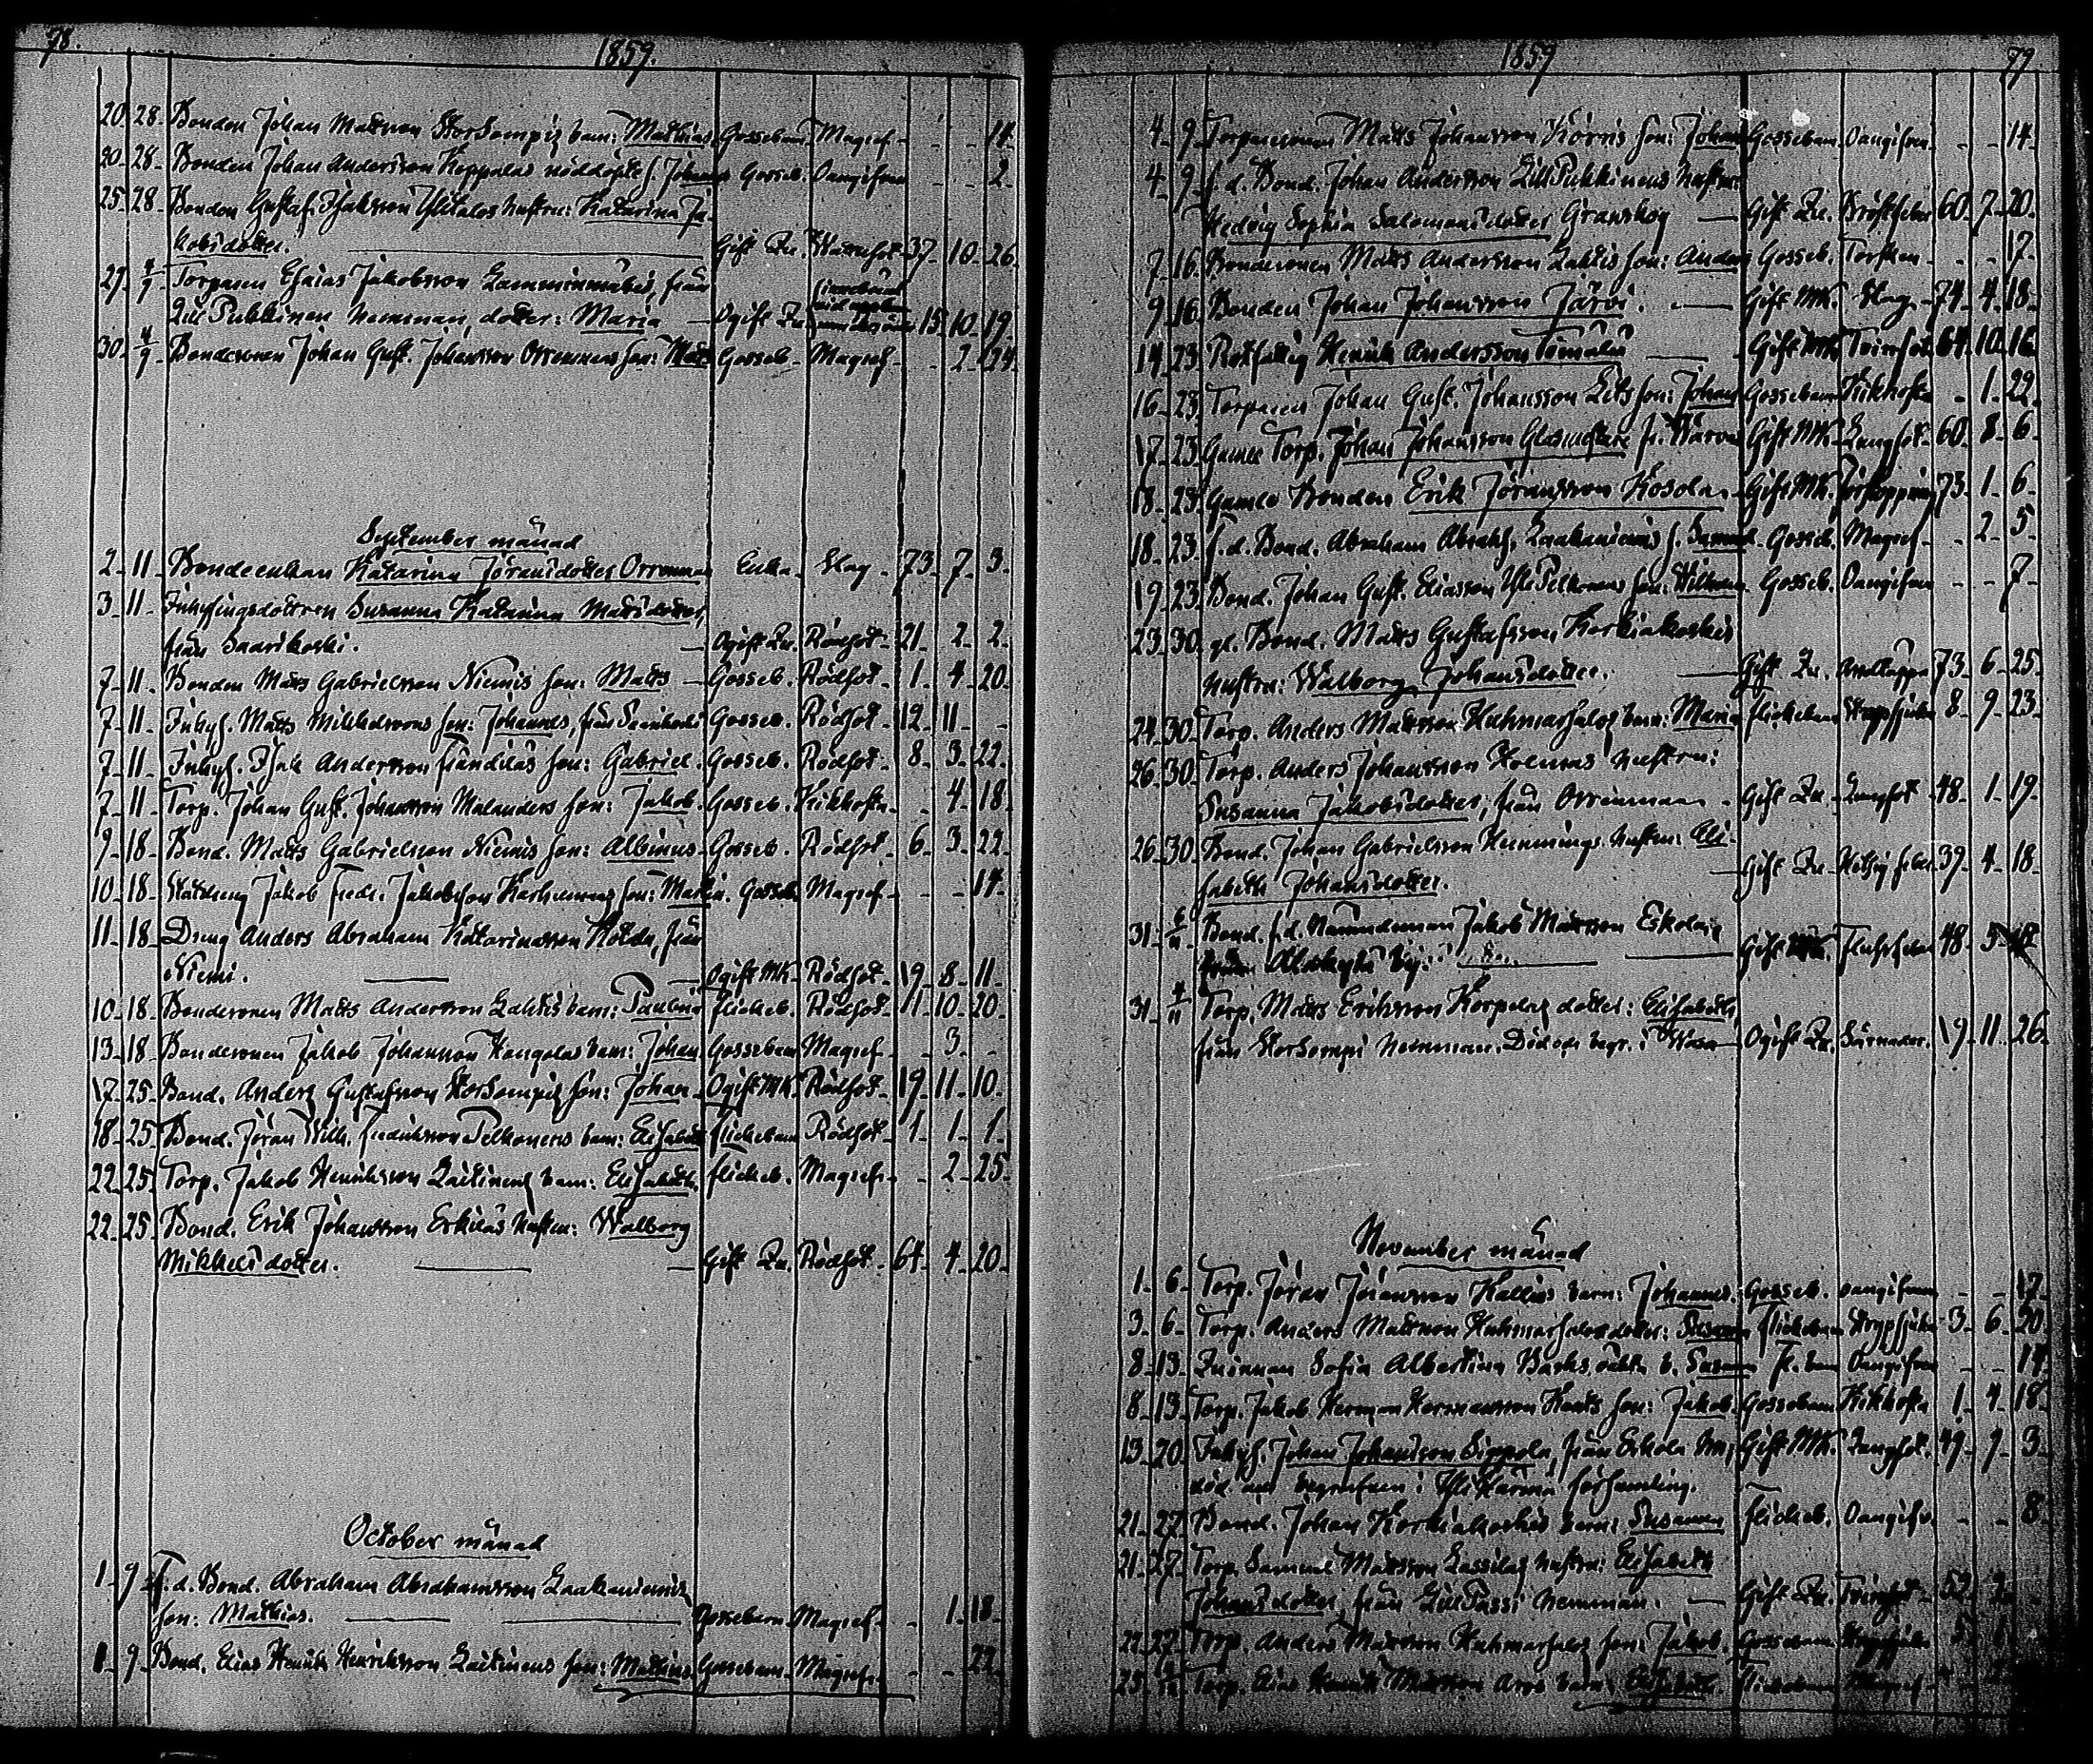 78.
1859.
20. 28. Bonden Johan Mattsson Storsompis barn: Mathias Gossebarn. Magref. - - 14.
20. 28. Bonden Johan Andersson Keppolas nöddöpte s. Johannes Gosseb. Oangifven - - 2.
25. 28. Bonden Gustaf Isaksson Ylitalos hustru: Katarina Ja-
kobsdotter. Gift Qu. Wattusot. 37. 10. 26.
27. 4/9 Torparen Esaias Jakobsson Lamminmäkis, från
Lill Pukkinen hemman, dotter: Maria Ogift Qu. 15. 10. 19
30. 4/9 Bondesonen Johan Gust. Johansson Orrenmaas son: Matts Gosseb. Magref. - 2. 24.
September månad
2. 11. Bondeenkan Katarina Jöransdotter Orrenmaa Enka. Slag. 73. 7. 3.
3. 11. Inhysingsdottren Susanna Katarina Mattsdotter,
från Saarikoski. Ogift Qu. Rödsot. 21. 2. 2.
7. 11. Bonden Matts Gabrielsson Niemis son: Matts Gosseb. Rödsot. 1. 4. 20.
7. 11. Inhys. Matts Mikkelssons son: Johannes, från Saarikoski Gosseb. Rödsot. 12. 11. -
7. 11. Inhys. Isak Andersson Frändiläs son: Gabriel. Gosseb. Rödsot. 8. 3. 22.
7. 11. Torp. Johan Gust. Johansson Malanders son: Jakob. Gosseb. Kikhosta. - 4. 18.
9. 18. Bond. Matts Gabrielsson Niemis son: Albinus. Gosseb. Rödsot. 6. 3. 22.
10. 18. Jakob Fredr. Jakobsson Karhumaas son: Martin. Gosseb. Magref. - - 14.
11. 18. Dreng Anders Abraham Katarinasson Kotola, från
Niemi. Ogift MK. Rödsot. 19. 8. 11.
10. 18. Bondesonen Matts Andersson Lahtis barn: Paulina Flickeb. Rödsot. 11. 10. 20.
13. 18. Bondesonen Jakob Johansson Kangolas barn: Johan Gossebarn Magref. - 3. -
17. 25. Bond. Anders Gustafsson Storsompis son: Johan. Ogift MK. Rödsot. 19. 11. 10.
18. 25. Bond. Jöran Wilh. Fredriksson Pelkonens barn: Elisabeth Flickebarn Rödsot. 1. 1. 1.
22. 25. Torp. Jakob Henriksson Laitinens barn: Elisabeth. Flickeb. Magref. - 2. 25.
22. 25. Bond. Erik Johansson Erkiläs hustru: Walborg
Mikkelsdotter. Gift Qu. Rödsot. 64. 4. 20.
October månad
1. 9. F.d. Bond. Abraham Abrahamsson Laakaniemis
son: Mathias. Gossebarn Magref. - 1. 18.
1. 9. Bond. Elias Henrik Henriksson Laitinens son: Mathias Gossebarn. Magref. - - 22.
1859
79
4. 9. Torparesonen Matts Johansson Körnis son: Johan Gossebarn Oangifven. - - 14.
4. 9. f.d. Bond. Johan Andersson Lill Pukkinens hustru:
Hedvig Sophia Salomonsdotter Granskog Gift Qu. Bröstfeber 60. 7. 20.
7. 16. Bondesonen Matts Andersson Lahtis son: Anders Gosseb. Torsken. - - 17.
9. 16. Bonden Johan Johansson Järvi. Gift MK. Slag. 74. 4. 18.
14. 23. Rotfattig Henrik Andersson Gift MK. Tvinsot 64. 10. 16.
16. 23. Torparen Johan Gust. Johansson Leis son: Johan Gossebarn Kikhosta - 1. 22.
17. 23. Gamle Torp. Johan Johansson Glasmästare fr. Gift MK. Lungsot. 60. 8. 6.
18. 23. Gamle Bonden Erik Jöransson Kosola. Gift MK. 73. 1. 6.
18. 23. f.d. Bond. Abraham Abrahs. Laakaniemis s. Samuel. Gosseb. Magref. - 2. 5.
19. 23. Bond. Johan Gust. Eliasson Yli Pelkonens son: Wilhelm Gosseb. Oangifven - - 7.
23. 30. gl. Bond. Matts Gustafsson Korkiakoskis
hustru: Walborg Johansdotter. Gift Qu. 73. 6. 25.
24. 30. Torp. Anders Mattsson Huhmarsalos barn: Maria Flickebarn Strypsjuka 8. 9. 23.
26. 30. Torp. Anders Johansson Holmas hustru:
Susanna Jakobsdotter, från Orrenmaa. Gift Qu. Lungsot 48. 1. 19.
26. 30. Bond. Johan Gabrielsson Hemmings hustru: Eli-
sabeth Johansdotter. Gift Qu. Hetsig feber 39. 4. 18.
31. 6/11 Bond. f.d. Nämndeman Jakob Mattsson Eskola,
Alakylä by. Gift MK. 48. 5.
31. 4/11 Torp. Matts Eriksson Korpelas dotter: Elisabeth,
från Storsompi hemman. Död o. begr. i Wasa Ogift Qu. 19. 11. 26.
November månad
1. 6. Torp. Jöran Jöransson Kallios barn: Johannes. Gosseb. Oangifven - - 17.
3. 6. Torp. Anders Mattsson Huhmarsalos dotter: Susanna Flickebarn Strypsjuka 3. 6. 20.
8. 13. Quinnan Sofia Albertina Backs oäkta b. Susanna fl. barn Oangifven - - 14.
8. 13. Torp. Jakob Herman Hermansson son: Jakob. Gossebarn Kikhosta 1. 4. 18.
13. 20. Inhys. Johan Johansson Sippola, från Eskola hm, Gift MK. Lungsot. 49. 9. 3.
död och begrafven i Yli Härmä församling.
21. 27. Bond. Johan Korkiakoskis barn: Susanna Flickeb. Oangifv. - - 8.
21. 27. Torp. Samuel Mattsson Lassilas hustru: Elisabeth
Johansdotter, från Lill Passi hemman. Gift Qu. Tvinsot
27. Torp. Anders Mattsson Huhmarsalos son: Jakob. Gossebarn Strypsjuka
25. Torp. Elias Henrik Mattsson barn: Elisabeth. Flickebarn Magref.